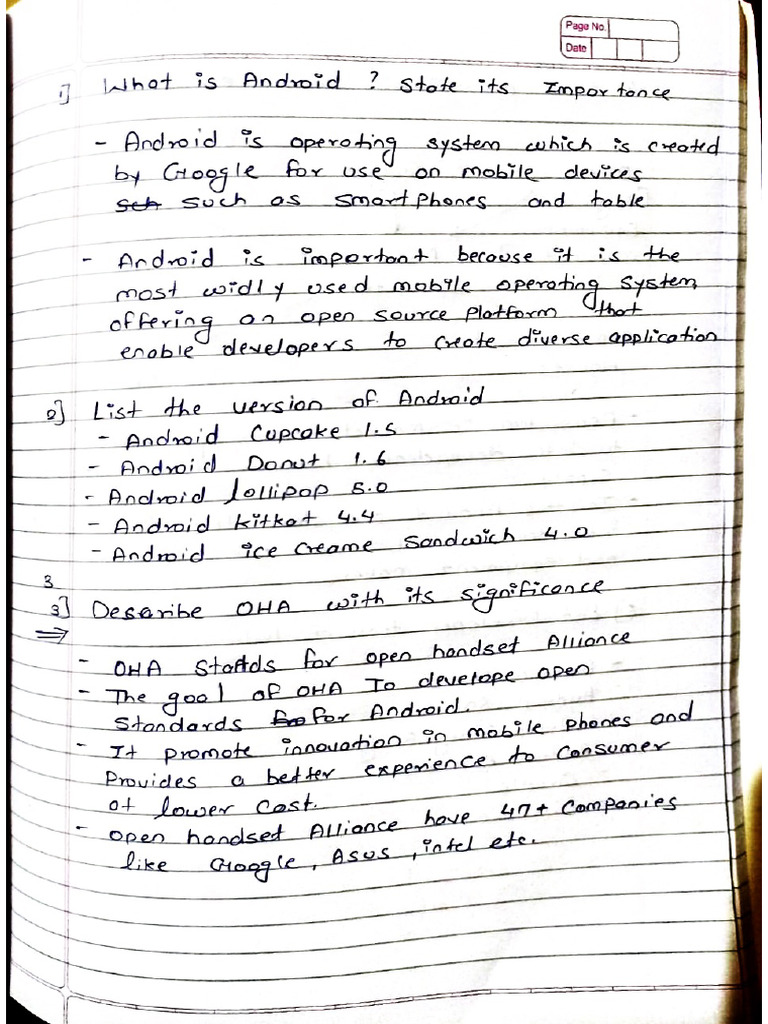 Page No.
Date
1] What is Android ? State its Importance
- Android is operating system which is created
by Google for use on mobile devices
such as smartphones and table
- Android is important because it is the
most widly used mobile operating system,
offering an open source platform that
enable developers to create diverse application
2] List the version of Android
- Android Cupcake 1.5
- Android Donut 1.6
- Android lollipop 5.0
- Android kitkat 4.4
- Android ice creame sandwich 4.0
3
3] Describe OHA with its significance
⇒
- OHA Stands for open handset Alliance
- The goal of OHA To develope open
standards for Android.
- It promote innovation in mobile phones and
Provides a better experience to consumer
at lower cost.
- open handset Alliance have 47+ companies
like Google, Asus, intel etc.